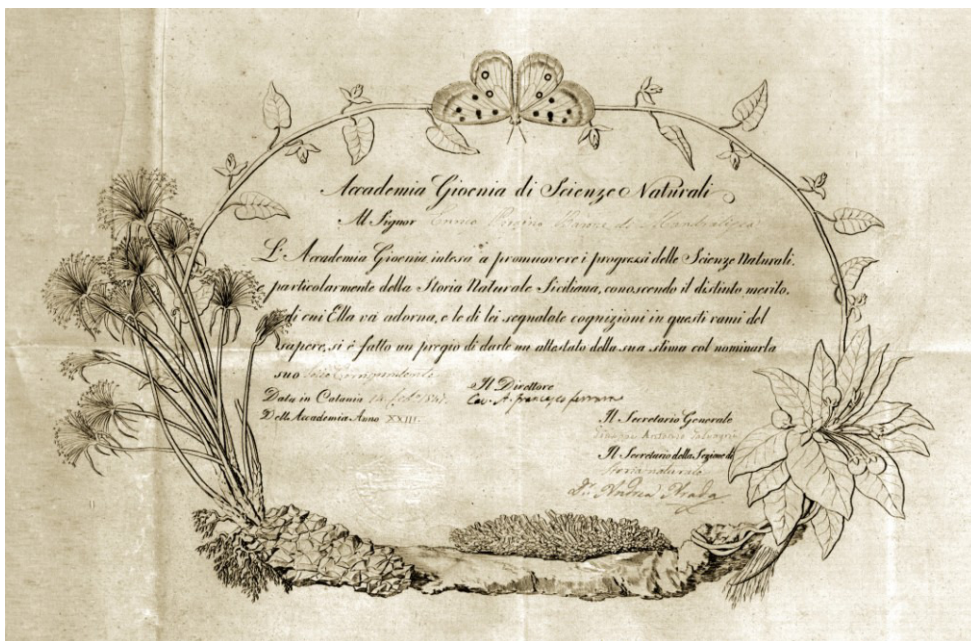 Accademia Gioenia di Scienze Naturali
Al Signor Enrico Barone di Mandralisca
L'Accademia Gioenia intesa a promuovere i progressi delle Scienze Naturali,
e particolarmente della Storia Naturale Siciliana, conoscendo il distinto merito,
di cui Ella và adorna, e le di lei segnalate cognizioni in questi rami del
sapere, si è fatto un pregio di darle un attestato della sua stima col nominarla
suo Socio Corrispondente
Il Direttore
Data in Catania
Cav. A. Francesco Ferrara
Dell'Accademia Anno XXIII.
Il Secretario Generale
Il Secretario della Sezione di
Storia naturale
Dr. Andrea